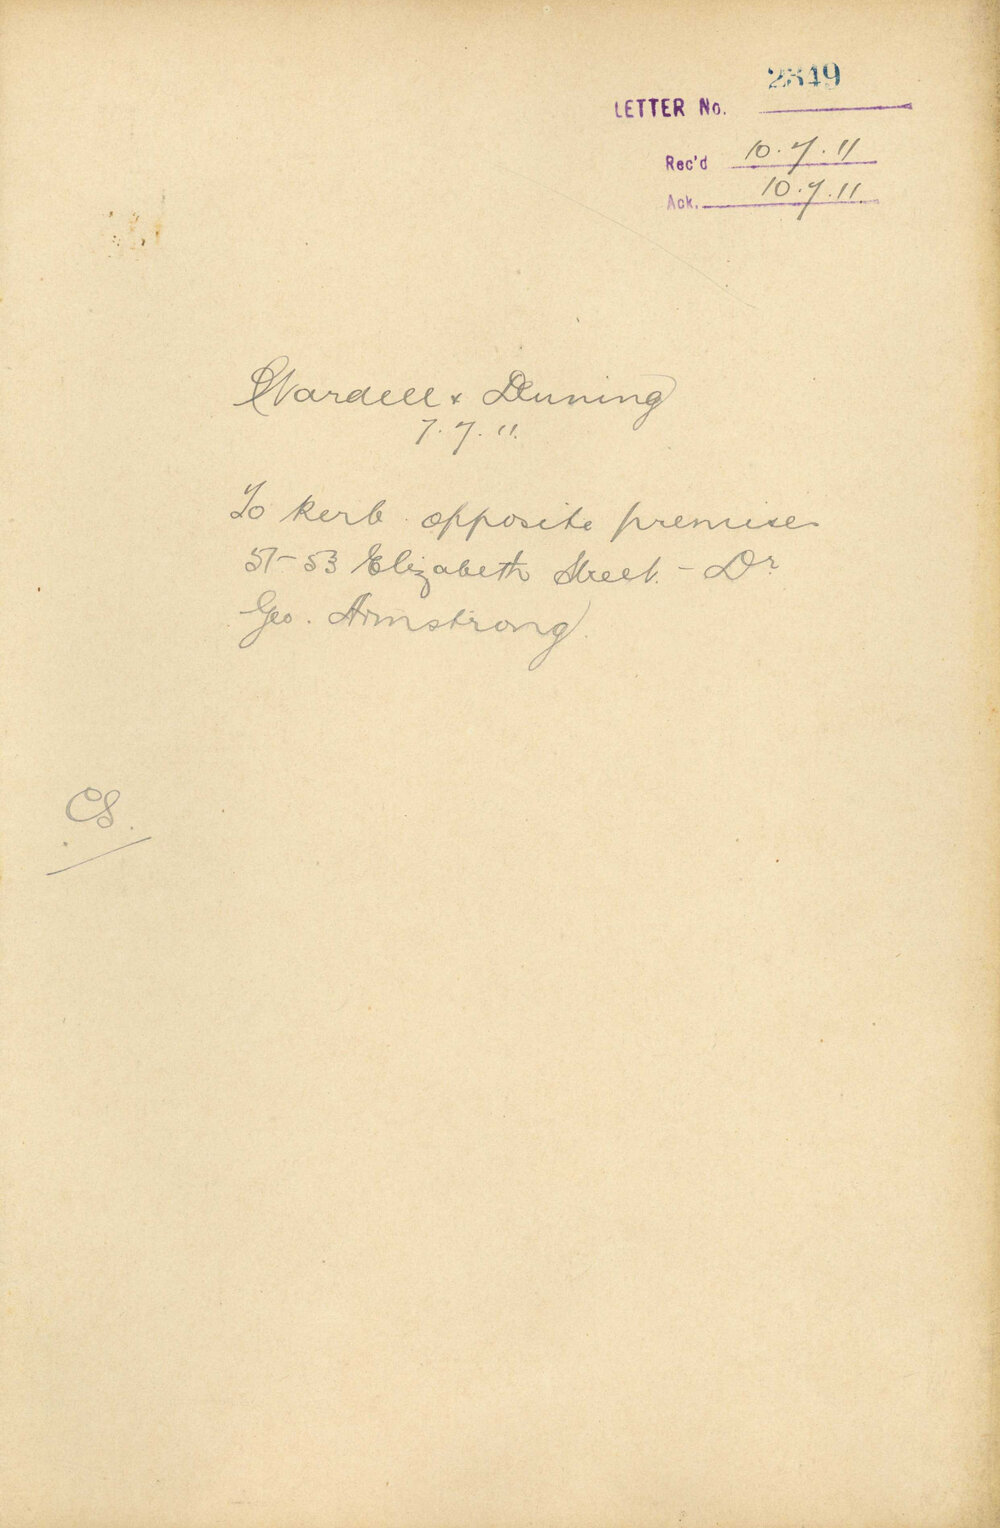 2849
LETTER No.
Rec'd 10.7.11
Ack. 10.7.11
Wardell & Denning
7.7.11.
To kerb opposite premises
51-53 Elizabeth Street. - Dr
Geo. Armstrong.
CS.